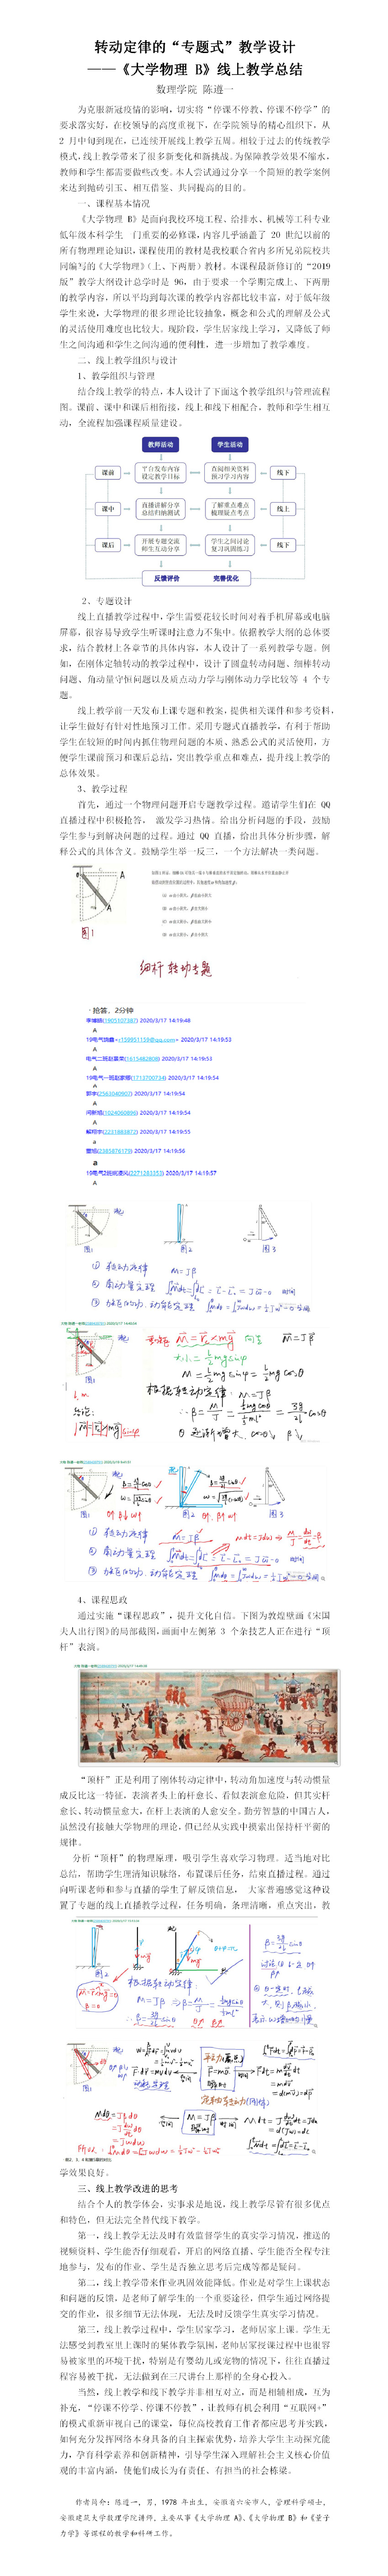 转动定律的“专题式”教学设计
——《大学物理 B》线上教学总结
数理学院 陈遵一
为克服新冠疫情的影响，切实将“停课不停教、停课不停学”的
要求落实好，在校领导的高度重视下，在学院领导的精心组织下，从
2 月中旬到现在，已连续开展线上教学五周。相较于过去的传统教学
模式，线上教学带来了很多新变化和新挑战。为保障教学效果不缩水，
教师和学生都需要做些改变。本人尝试通过分享一个简短的教学案例
来达到抛砖引玉、相互借鉴、共同提高的目的。
一、课程基本情况
《大学物理 B》是面向我校环境工程、给排水、机械等工科专业
低年级本科学生一门重要的必修课，内容几乎涵盖了 20 世纪以前的
所有物理理论知识，课程使用的教材是我校联合省内多所兄弟院校共
同编写的《大学物理》（上、下两册）教材。本课程最新修订的“2019
版”教学大纲设计总学时是 96，由于要求一个学期完成上、下两册
的教学内容，所以平均到每次课的教学内容都比较丰富，对于低年级
学生来说，大学物理的很多理论比较抽象，概念和公式的理解及公式
的灵活使用难度也比较大。现阶段，学生居家线上学习，又降低了师
生之间沟通和学生之间沟通的便利性，进一步增加了教学难度。
二、线上教学组织与设计
1、教学组织与管理
结合线上教学的特点，本人设计了下面这个教学组织与管理流程
图。课前、课中和课后相衔接，线上和线下相配合，教师和学生相互
动，全流程加强课程质量建设。
教师活动 学生活动
课前 平台发布内容 设定教学目标 查阅相关资料 预习学习内容 线下
课中 直播讲解分享 总结归纳测试 了解重点难点 梳理疑点考点 线上
课后 开展专题交流 师生互动分享 学生之间讨论 复习巩固练习 线下
反馈评价 完善优化
2、专题设计
线上直播教学过程中，学生需要花较长时间对着手机屏幕或电脑
屏幕，很容易导致学生听课时注意力不集中。依据教学大纲的总体要
求，结合教材上各章节的具体内容，本人设计了一系列教学专题。例
如，在刚体定轴转动的教学过程中，设计了圆盘转动问题、细棒转动
问题、角动量守恒问题以及质点动力学与刚体动力学比较等 4 个专
题。
线上教学前一天发布上课专题和教案，提供相关课件和参考资料，
让学生做好有针对性地预习工作。采用专题式直播教学，有利于帮助
学生在较短的时间内抓住物理问题的本质、熟悉公式的灵活使用，方
便学生课前预习和课后总结，突出教学重点和难点，提升线上教学的
总体效果。
3、教学过程
首先，通过一个物理问题开启专题教学过程。邀请学生们在 QQ
直播过程中积极抢答， 激发学习热情。给出分析问题的手段，鼓励
学生参与到解决问题的过程。通过 QQ 直播，给出具体分析步骤，解
释公式的具体含义。鼓励学生举一反三，一个方法解决一类问题。
图1
细杆转动专题
抢答，2分钟
2020/3/17 14:19:48
A
2020/3/17 14:19:53
A
2020/3/17 14:19:53
A
2020/3/17 14:19:54
A
2020/3/17 14:19:54
A
2020/3/17 14:19:54
A
2020/3/17 14:19:55
a
2020/3/17 14:19:56
a
2020/3/17 14:19:57
A
图1 图2 图3
① 转动定律 M=Jβ
② 角动量定理
图1
根据转动定律：M=Jβ
图1 图2 图3
① 转动定律 M=Jβ
② 角动量定理
4、课程思政
通过实施“课程思政”，提升文化自信。下图为敦煌壁画《宋国
夫人出行图》的局部截图，画面中左侧第 3 个杂技艺人正在进行“顶
杆”表演。
“顶杆”正是利用了刚体转动定律中，转动角加速度与转动惯量
成反比这一特征，表演者头上的杆愈长、看似表演愈危险，但其实杆
愈长、转动惯量愈大，在杆上表演的人愈安全。勤劳智慧的中国古人，
虽然没有接触大学物理的理论，但已经从实践中摸索出保持杆平衡的
规律。
分析“顶杆”的物理原理，吸引学生喜欢学习物理。适当地对比
总结，帮助学生理清知识脉络，布置课后任务，结束直播过程。通过
向听课老师和参与直播的学生了解反馈信息， 大家普遍感觉这种设
置了专题的线上直播教学过程，任务明确，条理清晰，重点突出，教
图2
根据转动定律：
图1
学效果良好。
三、线上教学改进的思考
结合个人的教学体会，实事求是地说，线上教学尽管有很多优点
和特色，但无法完全替代线下教学。
第一，线上教学无法及时有效监督学生的真实学习情况，推送的
视频资料、学生能否仔细观看，开启的网络直播、学生能否全程专注
地参与，发布的作业、学生是否独立思考后完成等都是疑问。
第二，线上教学带来作业巩固效能降低。作业是对学生上课状态
和问题的反馈，是老师了解学生的一个重要途径，但学生通过网络提
交的作业，很多细节无法体现，无法及时反馈学生真实学习情况。
第三，线上教学过程中，学生居家学习，老师居家上课。学生无
法感受到教室里上课时的集体教学氛围，老师居家授课过程中也很容
易被家里的环境干扰，特别是有婴幼儿或宠物的情况下，往往直播过
程容易被干扰，无法做到在三尺讲台上那样的全身心投入。
当然，线上教学和线下教学并非相互对立，而是相辅相成，互为
补充，“停课不停学、停课不停教”，让教师有机会利用“互联网+”
的模式重新审视自己的课堂，每位高校教育工作者都应思考并实践，
如何充分发挥网络本身具备的自主探索优势，培养大学生主动探究能
力，孕育科学素养和创新精神，引导学生深入理解社会主义核心价值
观的丰富内涵，使他们成长为有责任、有担当的社会栋梁。
作者简介：陈遵一，男，1978 年出生，安徽省六安市人，管理科学硕士，
安徽建筑大学数理学院讲师，主要从事《大学物理 A》、《大学物理 B》和《量子
力学》等课程的教学和科研工作。